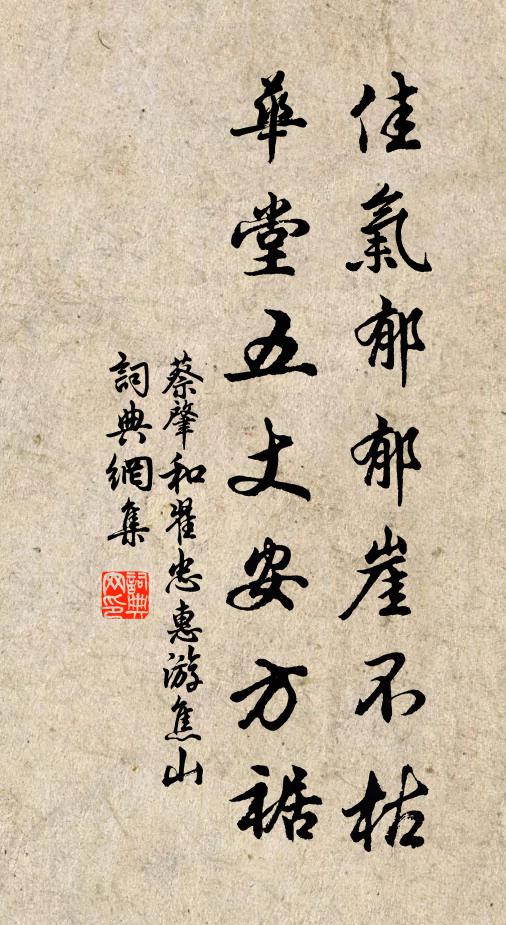 佳氣郁郁崖不枯
華堂五丈安方裾
蔡肇和翟忠惠游焦山
詞典網集
詞典网印